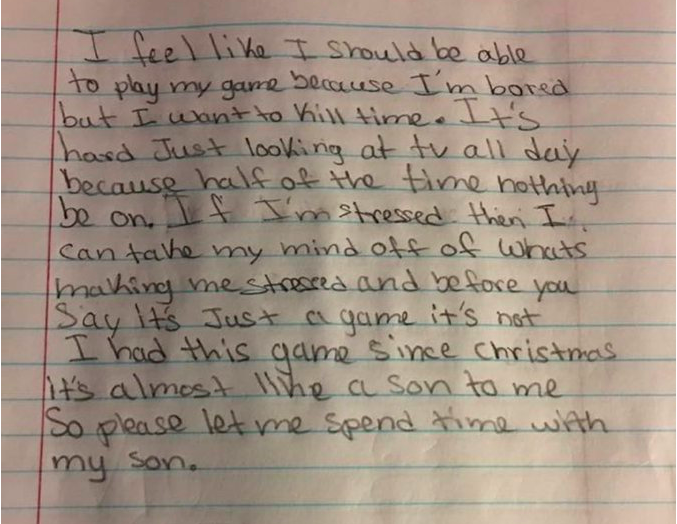 I feel like I should be able
to play my game because I'm bored
but I want to kill time. It's
hard Just looking at tv all day
because half of the time nothing
be on. If I'm stressed then I
can take my mind off of whats
making me stressed and before you
Say it's Just a game it's not
I had this game since christmas
it's almost like a son to me
So please let me spend time with
my son.